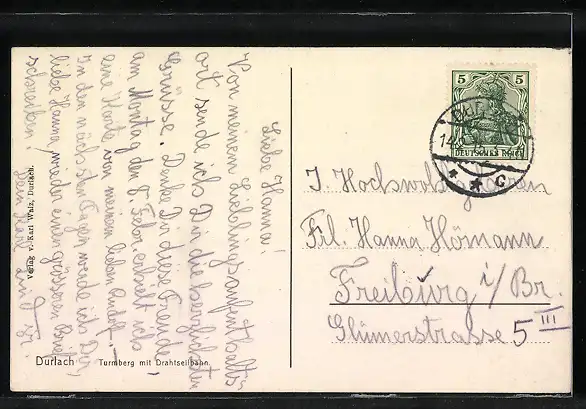 Liebe Hanna!
Von meinem Lieblingsaufenthalts-
ort sende ich Dir die herzlichsten
Grüsse. Denke Dir diese Freude,
am Montag den 8. Febr. erhielt ich
eine Karte von meinem lieben
In den nächsten Tagen werde ich Dir,
liebe Hanna, wieder einen grösseren Brief
schreiben.
Verlag v. Karl Walz, Durlach.
Durlach Turmberg mit Drahtseilbahn.
5 5
DEUTSCHES REICH
* * c
I. Hochwohlgeboren
Frl. Hanna Hömann
Freiburg i/Br.
Glümerstrasse 5 III